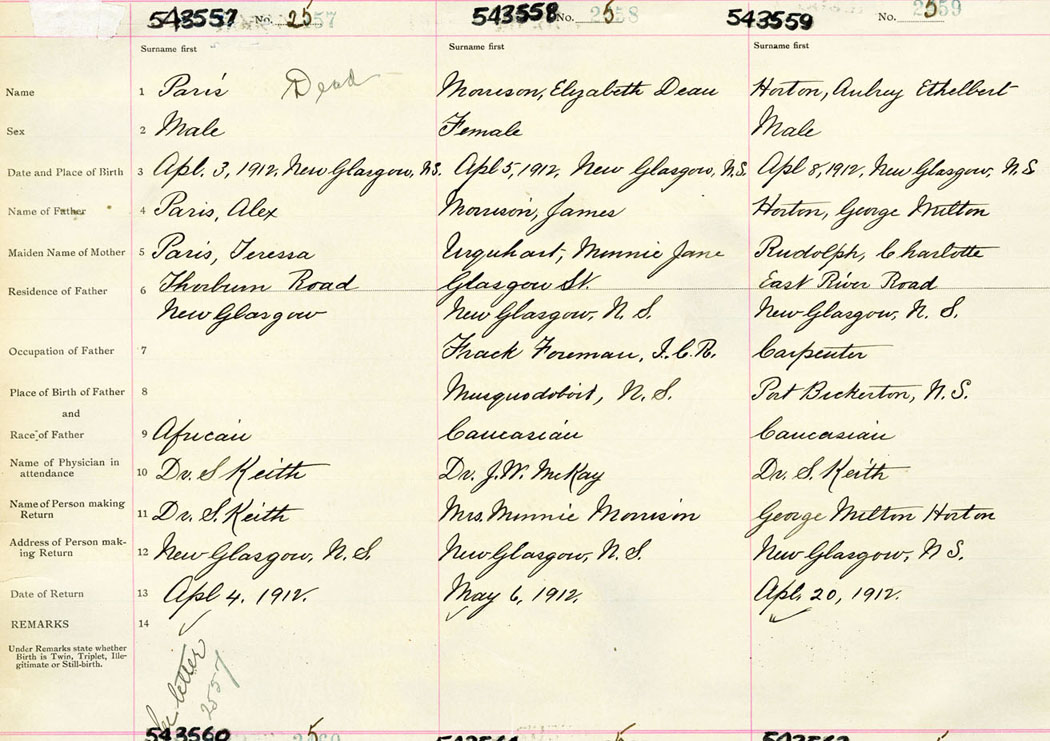 543557 No. 25 57 543558 No. 5 2558 543559 No. 5 2559
Surname first Surname first Surname first
Name 1 Paris Dead Morrison, Elizabeth Dean Horton, Aubrey Ethelbert
Sex 2 Male Female Male
Date and Place of Birth 3 Apl. 3, 1912, New Glasgow, N.S. Apl 5, 1912, New Glasgow, N.S. Apl 8, 1912, New Glasgow, N.S
Name of Father 4 Paris, Alex Morrison, James Horton, George Milton
Maiden Name of Mother 5 Paris, Teressa Urquhart, Minnie Jane Rudolph, Charlotte
Residence of Father 6 Thorburn Road Glasgow St. East River Road
New Glasgow New Glasgow, N.S. New Glasgow, N.S.
Occupation of Father 7 Track Foreman, I.C.R. Carpenter
Place of Birth of Father 8 Musquodoboit, N.S. Port Bickerton, N.S.
and
Race of Father 9 African Caucasian Caucasian
Name of Physician in
attendance 10 Dr. S Keith Dr. J.W. McKay Dr. S. Keith
Name of Person making
Return 11 Dr. S. Keith Mrs. Minnie Morrison George Milton Horton
Address of Person mak-
ing Return 12 New Glasgow, N.S New Glasgow, N.S. New Glasgow, N S.
Date of Return 13 Apl 4. 1912. May 6, 1912. Apl. 20, 1912.
REMARKS 14
Under Remarks state whether
Birth is Twin, Triplet, Ille-
gitimate or Still-birth.
letter
2557
543560 5